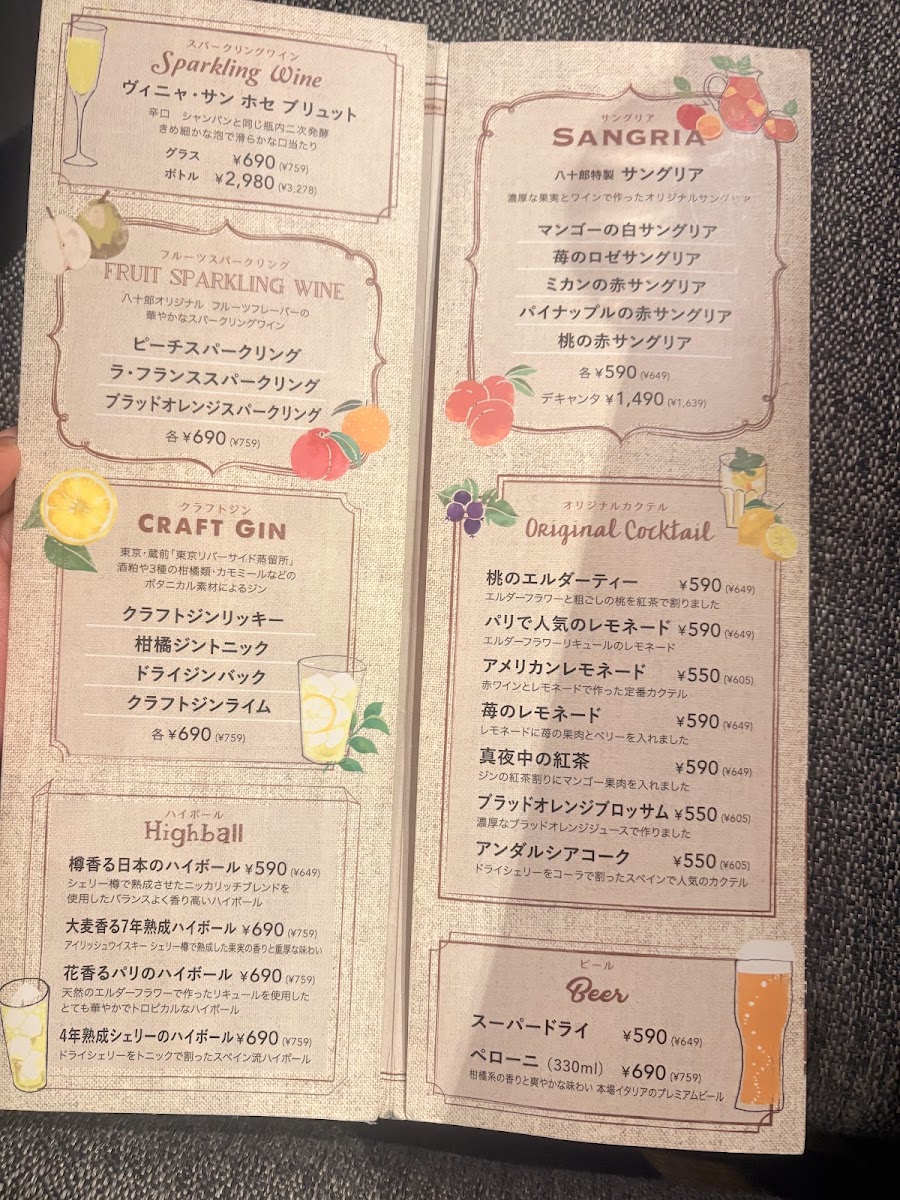 スパークリングワイン
Sparkling Wine
ヴィニャ・サン ホセ ブリュット
辛口 シャンパンと同じ瓶内二次発酵
きめ細かな泡で滑らかな口当たり
グラス ¥690 (¥759)
ボトル ¥2,980 (¥3,278)
フルーツスパークリング
FRUIT SPARKLING WINE
八十郎オリジナル フルーツフレーバーの
華やかなスパークリングワイン
ピーチスパークリング
ラ・フランススパークリング
ブラッドオレンジスパークリング
各 ¥690 (¥759)
クラフトジン
CRAFT GIN
東京・蔵前「東京リバーサイド蒸留所」
酒粕や3種の柑橘類・カモミールなどの
ボタニカル素材によるジン
クラフトジンリッキー
柑橘ジントニック
ドライジンバック
クラフトジンライム
各 ¥690 (¥759)
ハイボール
Highball
樽香る日本のハイボール ¥590 (¥649)
シェリー樽で熟成させたニッカリッチブレンドを
使用したバランスよく香り高いハイボール
大麦香る7年熟成ハイボール ¥690 (¥759)
アイリッシュウイスキー シェリー樽で熟成した果実の香りと重厚な味わい
花香るパリのハイボール ¥690 (¥759)
天然のエルダーフラワーで作ったリキュールを使用した
とても華やかでトロピカルなハイボール
4年熟成シェリーのハイボール ¥690 (¥759)
ドライシェリーをトニックで割ったスペイン流ハイボール
Wine
サングリア
SANGRIA
八十郎特製 サングリア
濃厚な果実とワインで作ったオリジナルサングリア
マンゴーの白サングリア
苺のロゼサングリア
ミカンの赤サングリア
パイナップルの赤サングリア
桃の赤サングリア
各 ¥590 (¥649)
デキャンタ ¥1,490 (¥1,639)
オリジナルカクテル
Original Cocktail
桃のエルダーティー ¥590 (¥649)
エルダーフラワーと粗ごしの桃を紅茶で割りました
パリで人気のレモネード ¥590 (¥649)
エルダーフラワーリキュールのレモネード
アメリカンレモネード ¥550 (¥605)
赤ワインとレモネードで作った定番カクテル
苺のレモネード ¥590 (¥649)
レモネードに苺の果肉とベリーを入れました
真夜中の紅茶 ¥590 (¥649)
ジンの紅茶割りにマンゴー果肉を入れました
ブラッドオレンジブロッサム ¥550 (¥605)
濃厚なブラッドオレンジジュースで作りました
アンダルシアコーク ¥550 (¥605)
ドライシェリーをコーラで割ったスペインで人気のカクテル
ビール
Beer
スーパードライ ¥590 (¥649)
ペローニ (330ml) ¥690 (¥759)
柑橘系の香りと爽やかな味わい 本場イタリアのプレミアムビール